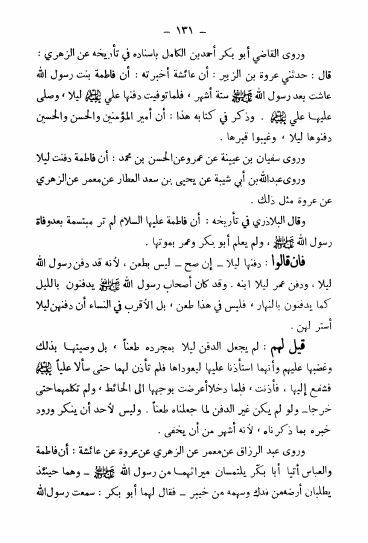 – ١٣١ –
وروى القاضي أبو بكر أحمد بن الكامل باسناده في تأريخه عن الزهري :
قال : حدثني عروة بن الزبير : أن عائشة أخبرته : أن فاطمة بنت رسول الله
عاشت بعد رسول الله ﷺ ستة أشهر ، فلما توفيت دفنها علي ﷺ ليلا ، وصلى
عليها علي ﷺ . وذكر في كتابه هذا : أن أمير المؤمنين والحسن والحسين
دفنوها ليلا ، وغيبوا قبرها .
وروى سفيان بن عيينة عن عمرو عن الحسن بن محمد : أن فاطمة دفنت ليلا
وروى عبدالله بن أبي شيبة عن يحيى بن سعد العطار عن معمر عن الزهري
عن عروة مثل ذلك .
وقال البلاذري في تأريخه : أن فاطمة عليها السلام لم تر مبتسمة بعد وفاة
رسول الله ﷺ ، ولم يعلم أبو بكر وعمر بموتها .
فان قالوا : دفنها ليلا – إن صح – ليس بطعن ، لأنه قد دفن رسول الله
ليلا ، ودفن عمر ليلا ابنه . وقد كان أصحاب رسول الله ﷺ يدفنون بالليل
كما يدفنون بالنهار ، فليس في هذا طعن ، بل الأقرب في النساء أن دفنهن ليلا
أستر لهن .
قيل لهم : لم يجعل الدفن ليلا بمجرده طعناً ، بل وصيتها بذلك
وغضبها عليهم وأنهما استأذنا عليها ليعوداها فلم تأذن لهما حتى سألا علياً ﷺ
فشفع إليها ، فأذنت ، فلما دخلا أعرضت بوجهها الى الحائط ، ولم تكلمهما حتى
خرجا – ولو لم يكن غير الدفن لما جعلناه طعناً . وليس لأحد أن ينكر ورود
خبره بما ذكرناه ، لأنه أشهر من أن يخفى .
وروى عبد الرزاق عن معمر عن الزهري عن عروة عن عائشة : أن فاطمة
والعباس أتيا أبا بكر يلتمسان ميراثهما من رسول الله ﷺ – وهما حينئذ
يطلبان أرضه من فدك وسهمه من خيبر – فقال لهما أبو بكر : سمعت رسول الله